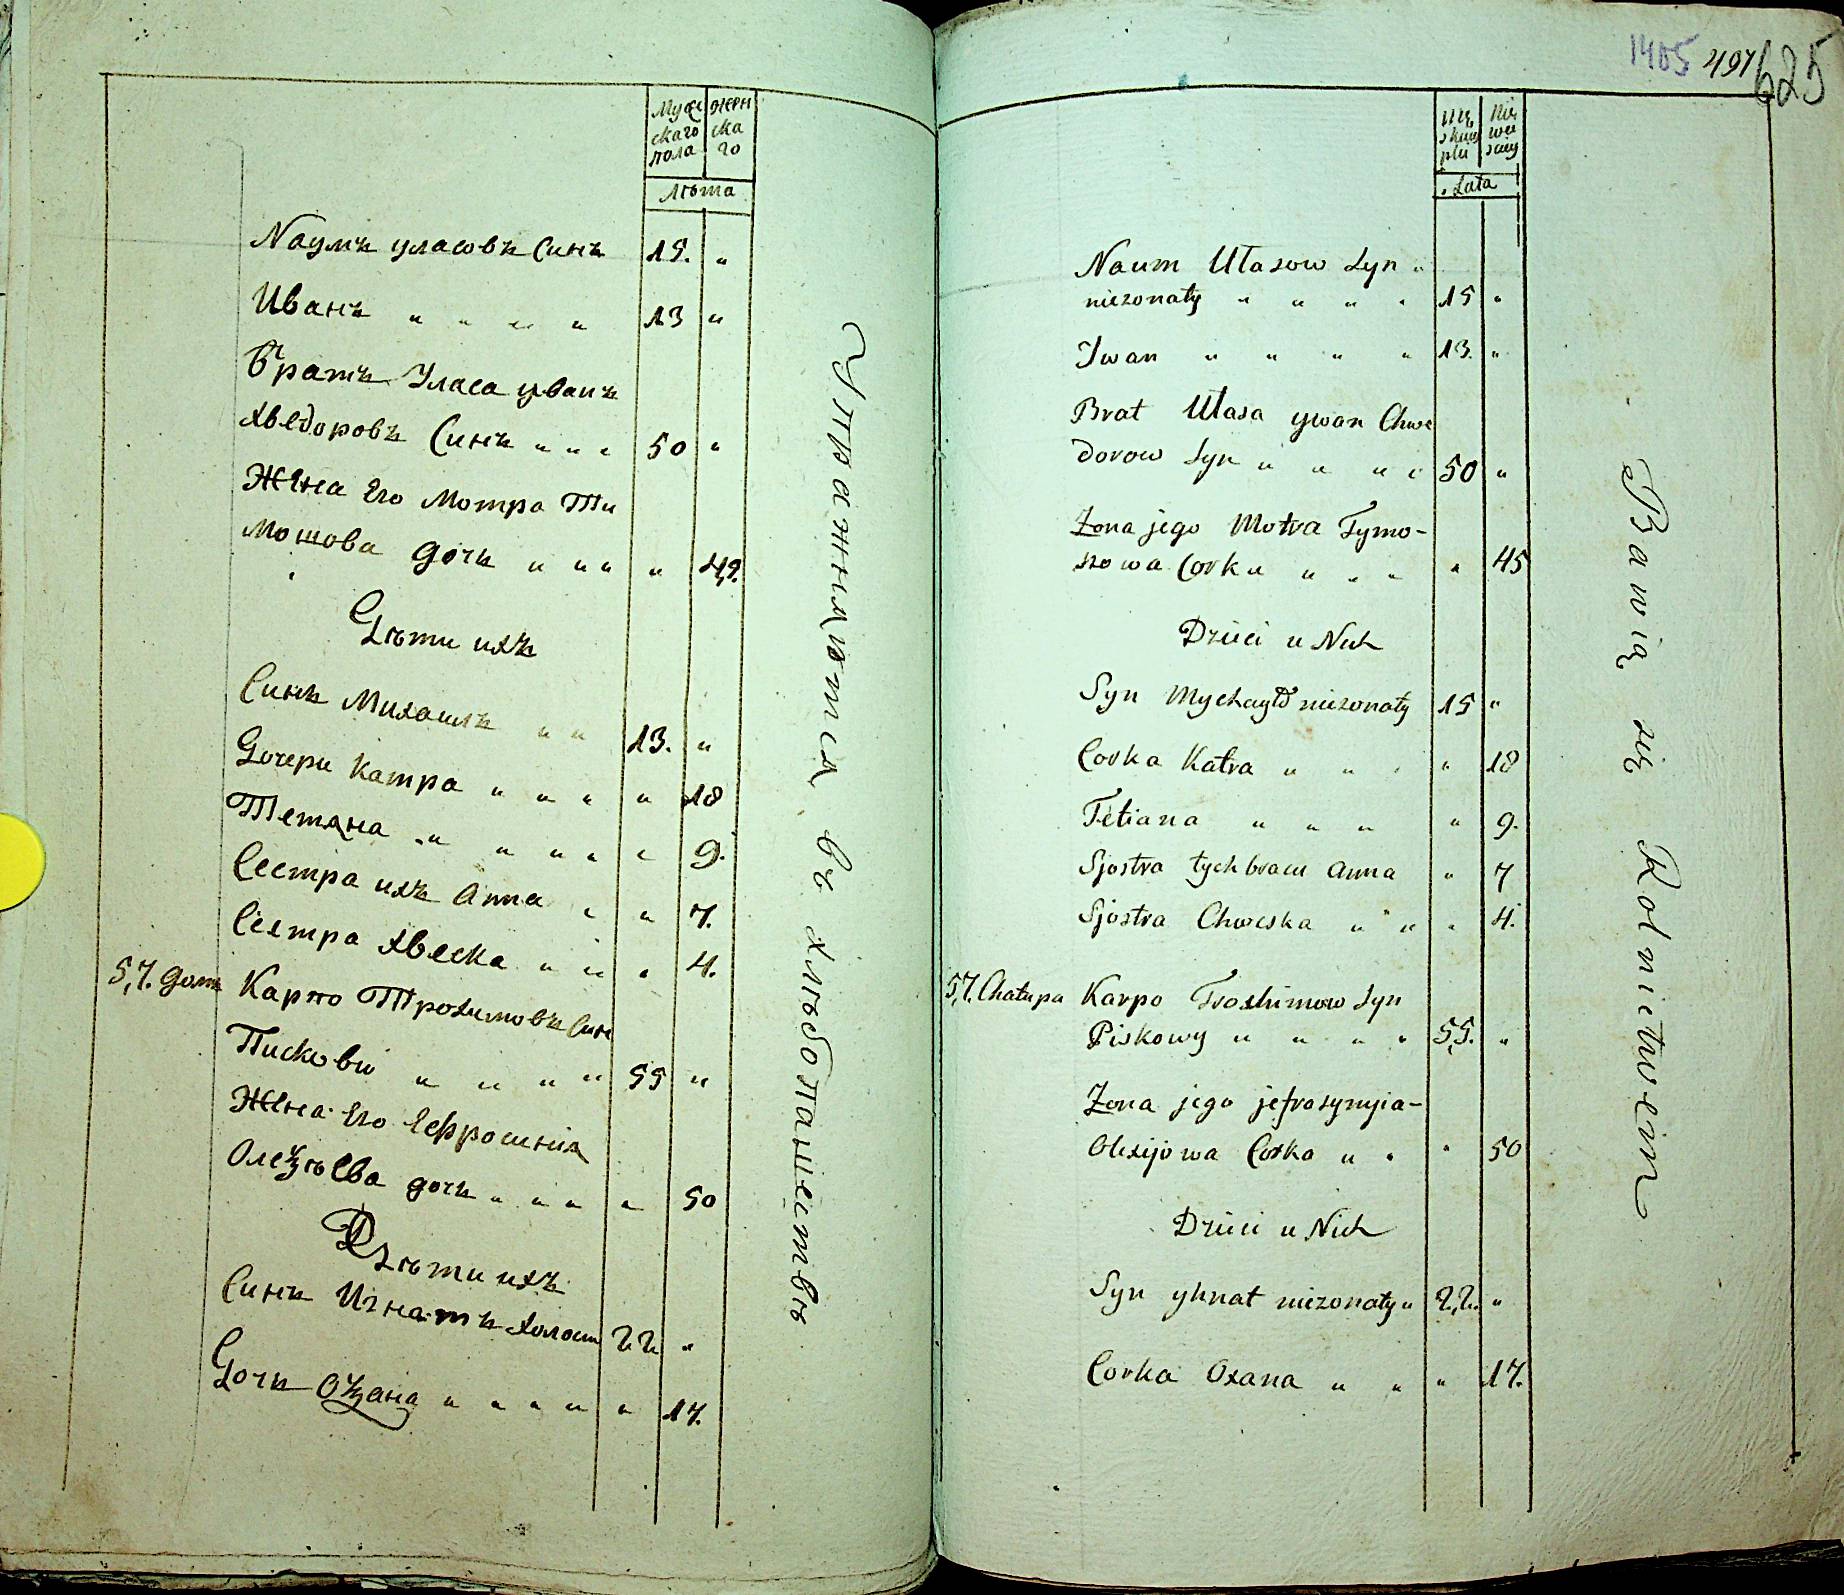 Муж
скаго
пола
жен
ска
го
Лѣта
Наумъ уласовъ Синъ 15. "
Иванъ " " " " 13 "
Братъ Уласа иванъ
хведоровъ Синъ " " " 50 "
Жена Его Мотра Ти
мошова дочъ " " " " 42.
Дѣти ихъ
Синъ Михаилъ " " 13. "
Дочери Катра " " " " 18
Тетяна " " " " " 9.
Сестра ихъ Анна " " 7.
Сестра хвеска " " " 4.
57. домъ Карпо Трохимовъ Син
Писковій " " " " 55 "
Жена Его Ефросинія
Олеѯѣева дочъ " " " " 50
Дѣти ихъ
Синъ Игнатъ холост 22 "
Дочъ Оѯана " " " " " 17.
Упражняются въ хлѣбопашествѣ
1405 497 625
Mę
skiey
płci
Nie
wie
sciey
Lata
Naum Ułasow Syn "
niezonaty " " " " 15 "
Jwan " " " " 13. "
Brat Ułasa ywan Chwe
dorow Syn " " " " 50 "
Zona jego Motra Tymo-
szowa Corka " " " " 45
Dzieci u Nich
Syn Mychayło niezonaty 15 "
Corka Katra " " " " 18
Tetiana " " " " 9.
Sjostra tych braci Anna " 7
Sjostra Chweska " " " 4.
57. Chatupa Karpo Trochimow Syn
Piskowy " " " " 55. "
Zona jego jefrosynyia-
Olexijowa Corka " " " 50
Dzieci u Nich
Syn yhnat niezonaty " 22. "
Corka Oxana " " " 17.
Bawią się Rolnictwem